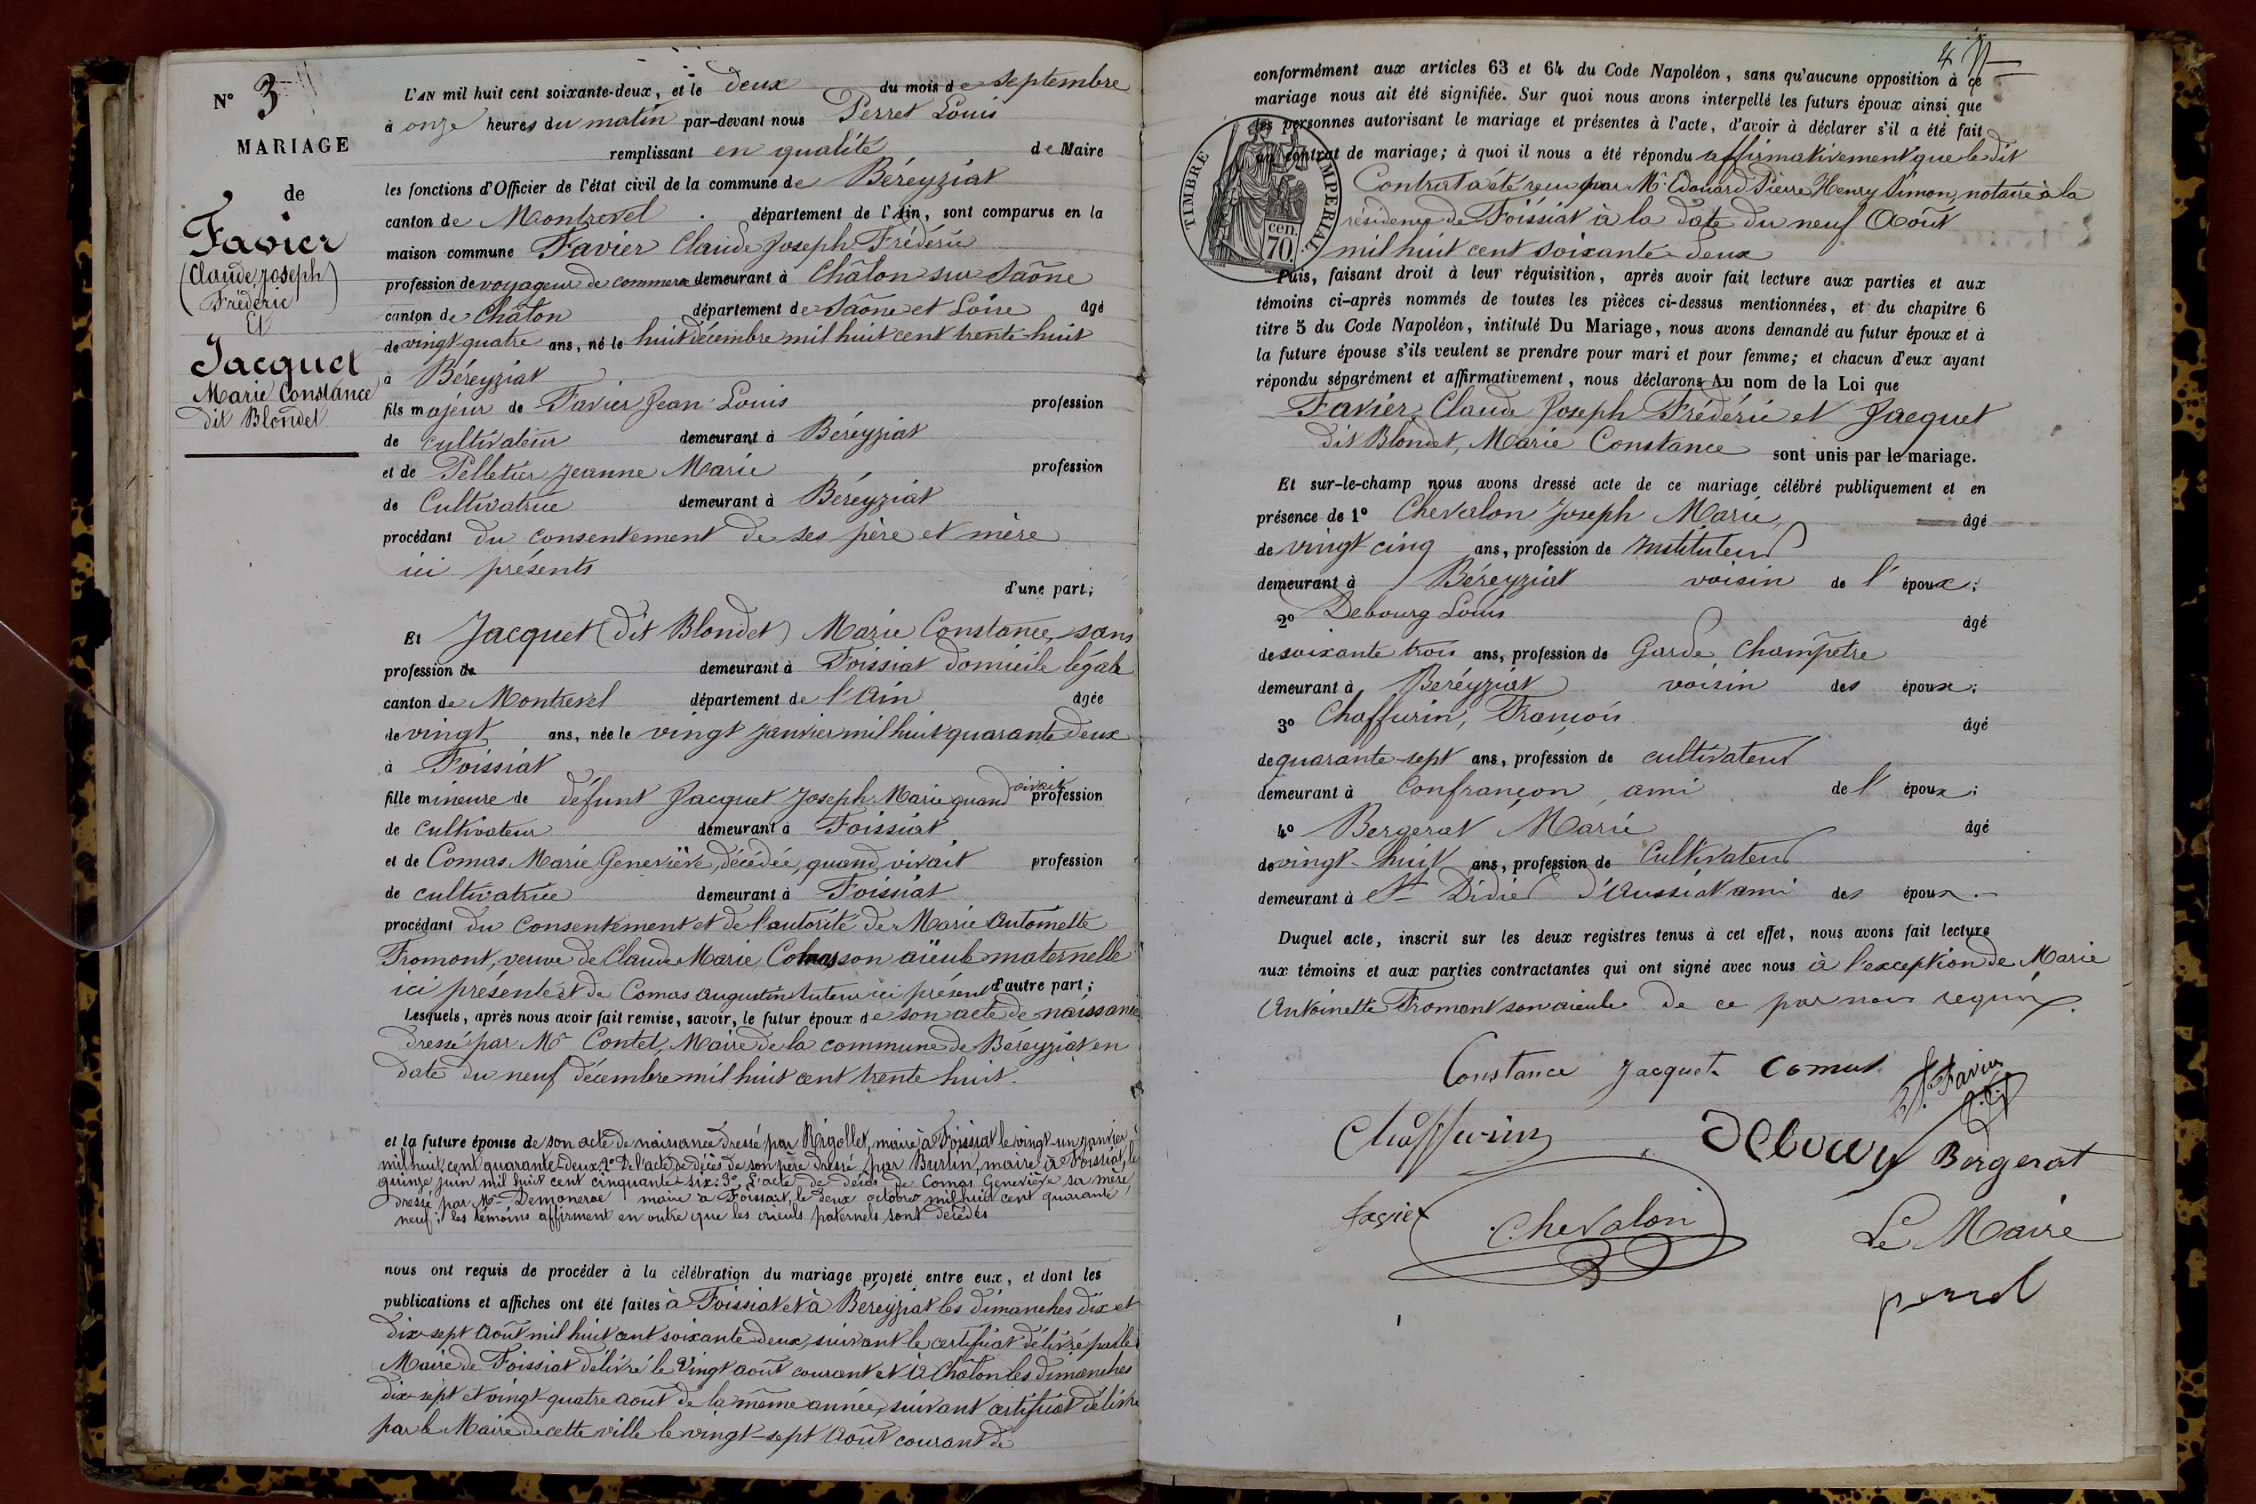 N° 3
MARIAGE
de
Favier
(Claude Joseph
Frédéric)
Et
Jacquet
Marie Constance
dit Blondet
L'AN mil huit cent soixante-deux, et le deux du mois de septembre
à onze heures du matin par-devant nous Perret Louis
remplissant en qualité de Maire
les fonctions d'Officier de l'état civil de la commune de Béréyziat
canton de Montrevel département de l'Ain, sont comparus en la
maison commune Favier Claude Joseph Frédéric
profession de voyageur de commerce demeurant à Châlon sur Saône
canton de Châlon département de Saône et Loire âgé
de vingt quatre ans, né le huit décembre mil huit cent trente huit
à Béreyziat
fils majeur de Favier Jean Louis profession
de cultivateur demeurant à Béréyziat
et de Pelletier Jeanne Marie profession
de Cultivatrice demeurant à Béréyziat
procédant du consentement de ses père et mère
ici présents
d'une part;
Et Jacquet (dit Blondet) Marie Constance, sans
profession de demeurant à Foissiat domicile légale
canton de Montrevel département de l'Ain âgée
de vingt ans, née le vingt janvier mil huit quarante deux
à Foissiat
fille mineure de défunt Jacquet Joseph Marie quand vivait profession
de cultivateur demeurant à Foissiat
et de Comas Marie Geneviève, décédée, quand vivait profession
de cultivatrice demeurant à Foissiat
procédant du consentement et de l'autorité de Marie Antoinette
Fromont, veuve de Claude Marie Comas son aïeule maternelle
ici présente et de Comas Augustin tuteur ici présent d'autre part;
Lesquels, après nous avoir fait remise, savoir, le futur époux de son acte de naissance
dressé par Mr Contet, Maire de la commune de Béréyziat en
date du neuf décembre mil huit cent trente huit.
et la future épouse de son acte de naissance dressé par Rigollet, maire à Foissiat le vingt-un janvier
mil huit cent quarante-deux, 2° De l'acte de décès de son père dressé par Burlin, maire à Foissiat, le
quinze juin mil huit cent cinquante-six. 3° L'acte de décès de Comas Geneviève sa mère,
dressé par Mr maire à Foissiat, le deux octobre mil huit cent quarante
neuf; les témoins affirment en outre que les aïeuls paternels sont décédés
nous ont requis de procéder à la célébration du mariage projeté entre eux, et dont les
publications et affiches ont été faites à Foissiat et à Béréyziat les dimanches dix et
dix-sept Août mil huit cent soixante deux, suivant le certificat délivré par le
Maire de Foissiat délivré le Vingt août courant et à Châlon les dimanches
dix sept et vingt-quatre août de la même année, suivant certificat délivré
par le Maire de cette ville le vingt-sept Août courant de
conformément aux articles 63 et 64 du Code Napoléon, sans qu'aucune opposition à ce
mariage nous ait été signifiée. Sur quoi nous avons interpellé les futurs époux ainsi que
les personnes autorisant le mariage et présentes à l'acte, d'avoir à déclarer s'il a été fait
un contrat de mariage; à quoi il nous a été répondu affirmativement que le dit
Contrat a été reçu par Mr Edouard Pierre Henry Simon, notaire à la
résidence de Foissiat à la date du neuf Août
mil huit cent soixante-deux
TIMBRE IMPÉRIAL
cen.
70.
Puis, faisant droit à leur réquisition, après avoir fait lecture aux parties et aux
témoins ci-après nommés de toutes les pièces ci-dessus mentionnées, et du chapitre 6
titre 5 du Code Napoléon, intitulé Du Mariage, nous avons demandé au futur époux et à
la future épouse s'ils veulent se prendre pour mari et pour femme; et chacun d'eux ayant
répondu séparément et affirmativement, nous déclarons Au nom de la Loi que
Favier, Claude Joseph Frédéric et Jacquet
dit Blondet, Marie Constance sont unis par le mariage.
Et sur-le-champ nous avons dressé acte de ce mariage célébré publiquement et en
présence de 1° Chevalon Joseph Marie, âgé
de vingt cinq ans, profession de Instituteur
demeurant à Béreyziat voisin de l'époux;
2° Debourg Louis âgé
de soixante trois ans, profession de Garde Champêtre
demeurant à Beréyziat voisin des époux;
3° Chaffurin, François âgé
de quarante-sept ans, profession de cultivateur
demeurant à Confrançon, ami de l'époux;
4° Bergerat Marie âgé
de vingt-huit ans, profession de Cultivateur
demeurant à St Didier d'Aussiat ami des époux.
Duquel acte, inscrit sur les deux registres tenus à cet effet, nous avons fait lecture
aux témoins et aux parties contractantes qui ont signé avec nous à l'exception de Marie
Antoinette Fromont son aïeule de ce par nous requis.
Constance Jacquet Comas Favier
Chaffurin Debourg Bergerat
Favier Chevalon Le Maire
Perret